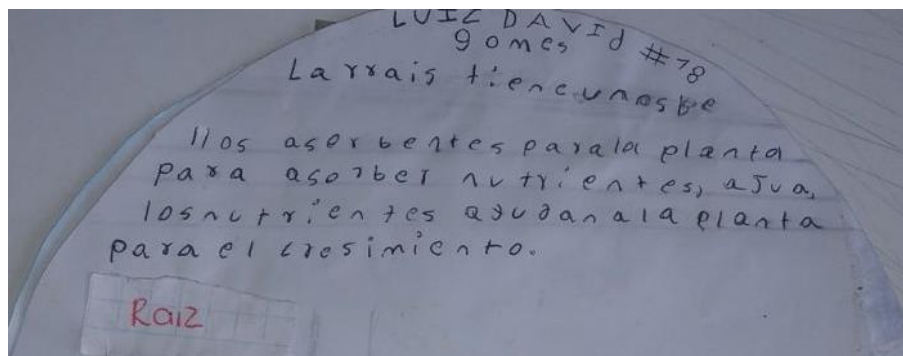 LUIZ DAVId #78
gomes
Larrais tieneunosbe
llos asorbentes parala planta
para asorber nutrientes, ajua,
losnutrientes ayudanala planta
para el cresimiento.
Raiz